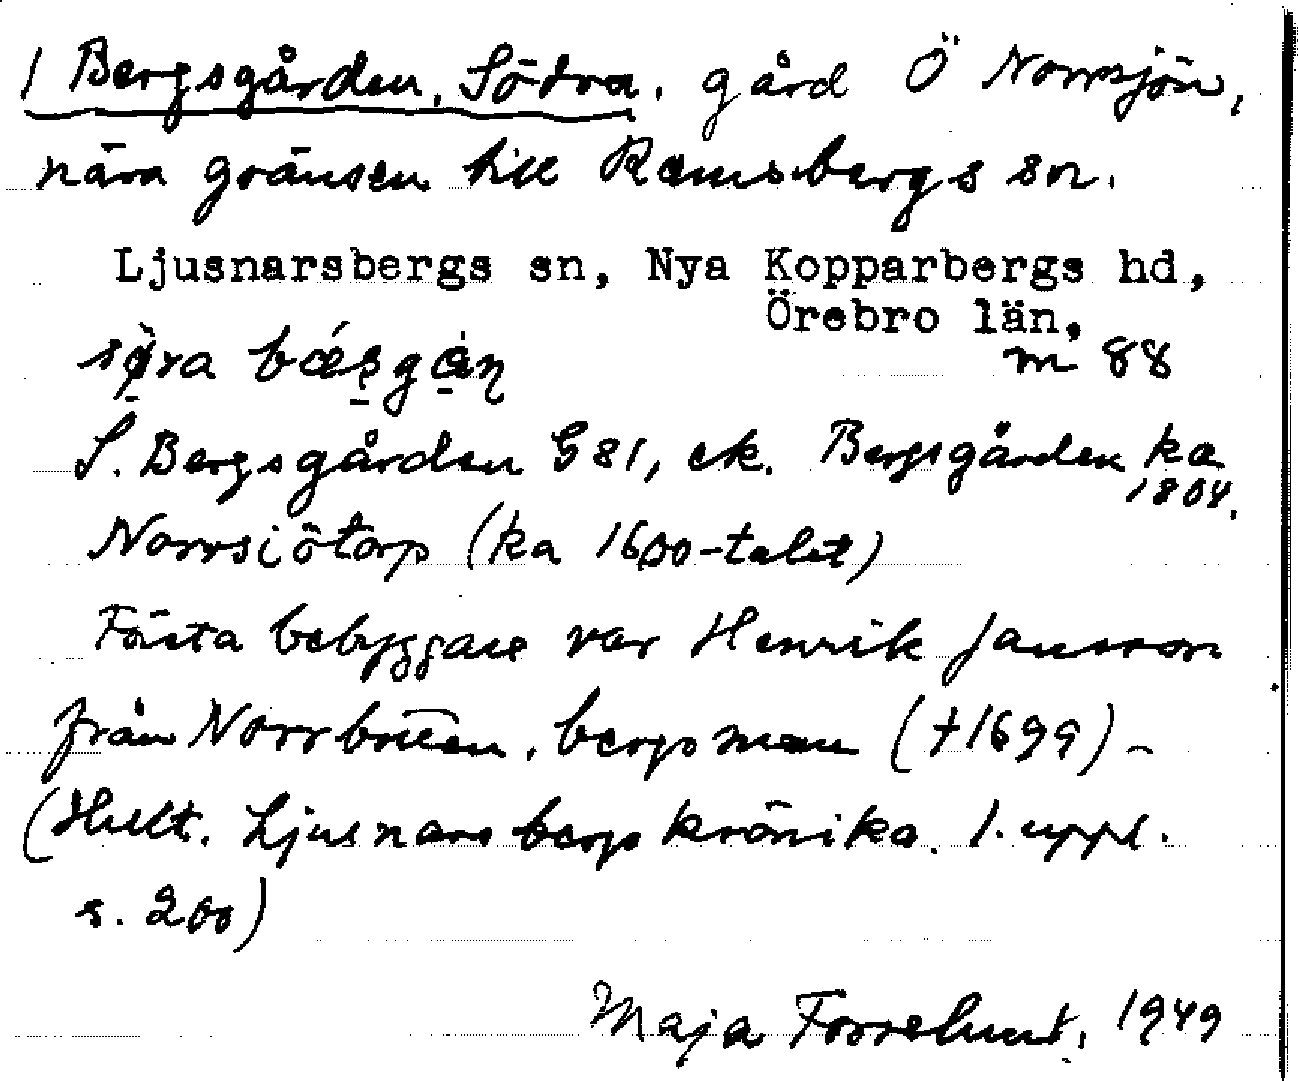 1 Bergsgården, Södra, gård Ö Norrsjön,
nära gränsen till Ramsbergs sn.
Ljusnarsbergs sn, Nya Kopparbergs hd,
Örebro län.
m 88
S. Bergsgården G81, ek. Bergsgården ka
1804.
Norrsiötorp (ka 1600-talet)
Första bebyggare var Henrik Jansson
från Norrbruten, bergsman (†1699) -
(Hult. Ljusnarsbergs krönika. 1. uppl.
s. 200)
Maja Forselund, 1949